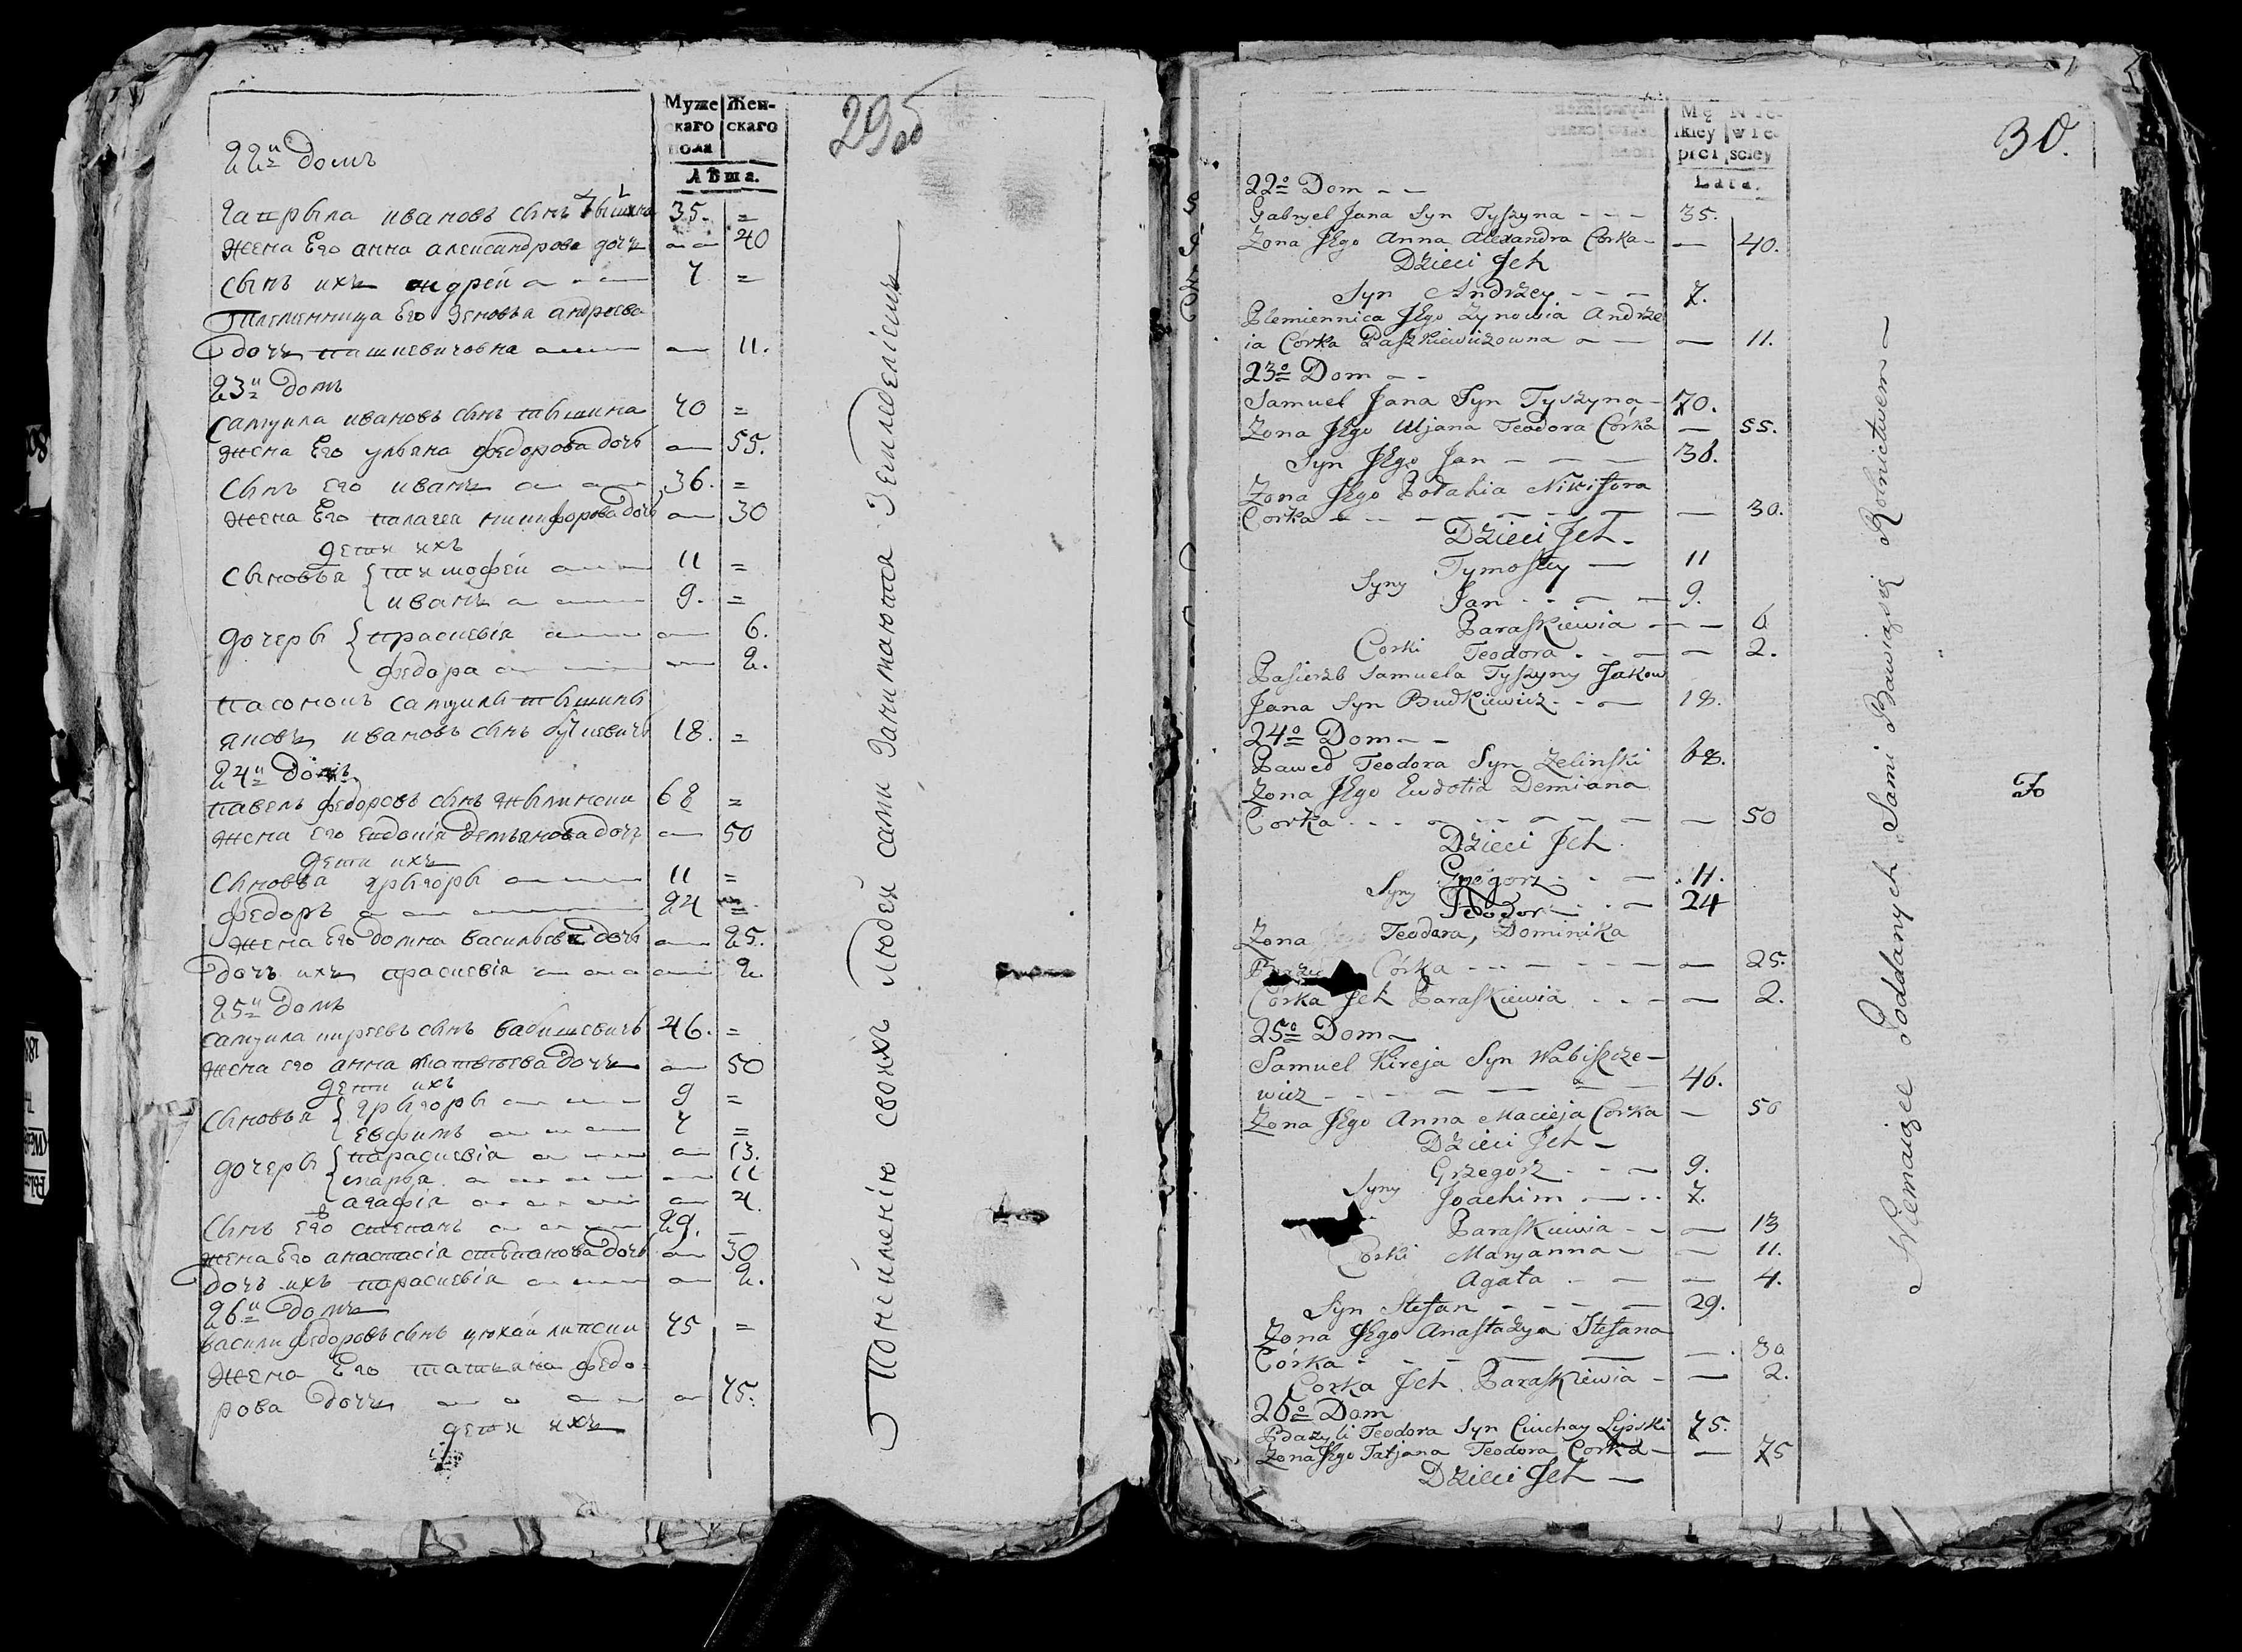 29об
Муже Жен-
скаго скаго
пола
Лѣта.
22й домъ
гапрыла ивановъ сынъ тышына 35. =
жена Его анна александрова дочь — 40
сынъ ихъ андрей — 7 =
Племенница Его зеновья андреева
дочь пашкевичовна — — 11.
23й домъ
самуила ивановъ сынъ тышина 70 =
жена Его ульяна федорова дочь — 55.
сынъ Его иванъ — 36. =
жена Его палагея никифорова дочь — 30
дети ихъ
сыновья тимофей — 11 =
иванъ — 9. =
дочеры праскевія — — 6.
федора — — 2.
пасономъ самуилы тышины
яковъ ивановъ сынъ буткевичъ 18. =
24й домъ
павелъ федоровъ сынъ жылински 68 =
жена его евдокія демьянова дочь — 50
дети ихъ
сыновья грыгоры — 11 =
федоръ — 24 =
жена Его домна васильева дочь — 25.
дочь ихъ праскевія — — 2.
25й домъ
самуила киреевъ сынъ вабищевичъ 46. =
жена его анна матвѣева дочь — 50
дети ихъ
сыновья грыгоры — 9 =
евфимъ — 7 =
дочеры параскевія — — 13.
марья — — 11
агафія — — 4.
сынъ Его степанъ — 29. —
жена Его анастасія стѣпанова дочь — 30
дочь ихъ параскевія — — 2.
26й домъ
васили федоровъ сынъ цюхай липски 75 =
жена Его татьяна федо-
рова дочь — — 75.
дети ихъ
Понеименію своихъ людей сами занимаются Земледеліемъ
30.
Mę Nie-
skiey wie-
płci sciey
Lata.
22o Dom — —
Gabryel Jana Syn Tyszyna - - - 35.
Zona JEgo Anna Alexandra Corka - — 40.
Dzieci Jch
Syn Andrzey - - - 7.
Plemiennica JEgo Zynowia Andrze
ia Córka Paszkiewiczowna — — 11.
23o Dom — -
Samuel Jana Syn Tyszyna - 70.
Zona JEgo Uljana Teodora Córka — 55.
Syn JEgo Jan — — — 36.
Zona JEgo Połahia Nikifora
Corka — - - — — — 30.
Dzieci Jch -
Syny Tymofiey — 11
Jan - - — — 9.
Paraskiewia — — 6
Corki Teodora - - — — 2.
Pasierzb Samuela Tyszyny Jakow
Jana Syn Budkiewicz - - — 18.
24o Dom — -
Paweł Teodora Syn Zelinski 68.
Zona JEgo Ewdotia Demiana
Corka - - - — — — 50
Dzieci Jch
Syny Grzegorz - - — 11.
Teodor - - — 24
Zona Teodora, Dominika
Córka - - - — — — 25.
Córka Jch Paraskiewia - - — — 2.
25o Dom —
Samuel Kireja Syn Wabiszcze-
wicz - - - — — — 46.
Zona JEgo Anna Macieja Corka — 50
Dzieci Jch —
Syny Grzegorz - - — 9.
Joachim — - - 7.
Paraskiewia - - — 13
Corki Maryanna — — 11.
Agata - — — 4.
Syn Stefan - - - — 29.
Zona JEgo Anastazya Stefana
Córka - - - — — 30
Corka Jch Paraskiewia - — 2.
26o Dom
Bazyli Teodora Syn Ciuchay Lipski 75.
Zona JEgo Tatjana Teodora Corka — — 75
Dzieci Jch —
Niemaiące Poddanych Sami Bawią się Rolnictwem —